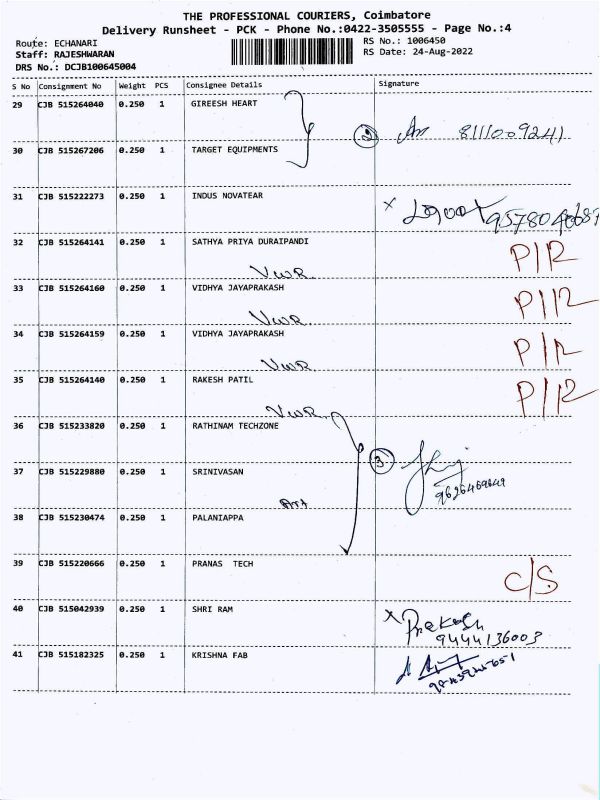 THE PROFESSIONAL COURIERS, Coimbatore
Delivery Runsheet - PCK - Phone No.:0422-3505555 - Page No.:4
Route: ECHANARI
RS No.: 1006450
Staff: RAJESHWARAN
RS Date: 24-Aug-2022
DRS No.: DCJB100645004
S No Consignment No Weight PCS Consignee Details Signature
29 CJB 515264040 0.250 1 GIREESH HEART
2 8111009241
30 CJB 515267206 0.250 1 TARGET EQUIPMENTS
31 CJB 515222273 0.250 1 INDUS NOVATEAR
x
32 CJB 515264141 0.250 1 SATHYA PRIYA DURAIPANDI P/R
VWR
33 CJB 515264160 0.250 1 VIDHYA JAYAPRAKASH P/R
VWR
34 CJB 515264159 0.250 1 VIDHYA JAYAPRAKASH P/R
VWR
35 CJB 515264140 0.250 1 RAKESH PATIL P/R
VWR
36 CJB 515233820 0.250 1 RATHINAM TECHZONE
3
37 CJB 515229880 0.250 1 SRINIVASAN
38 CJB 515230474 0.250 1 PALANIAPPA
39 CJB 515220666 0.250 1 PRANAS TECH C/S
40 CJB 515042939 0.250 1 SHRI RAM
x Prakash
9444136003
41 CJB 515182325 0.250 1 KRISHNA FAB